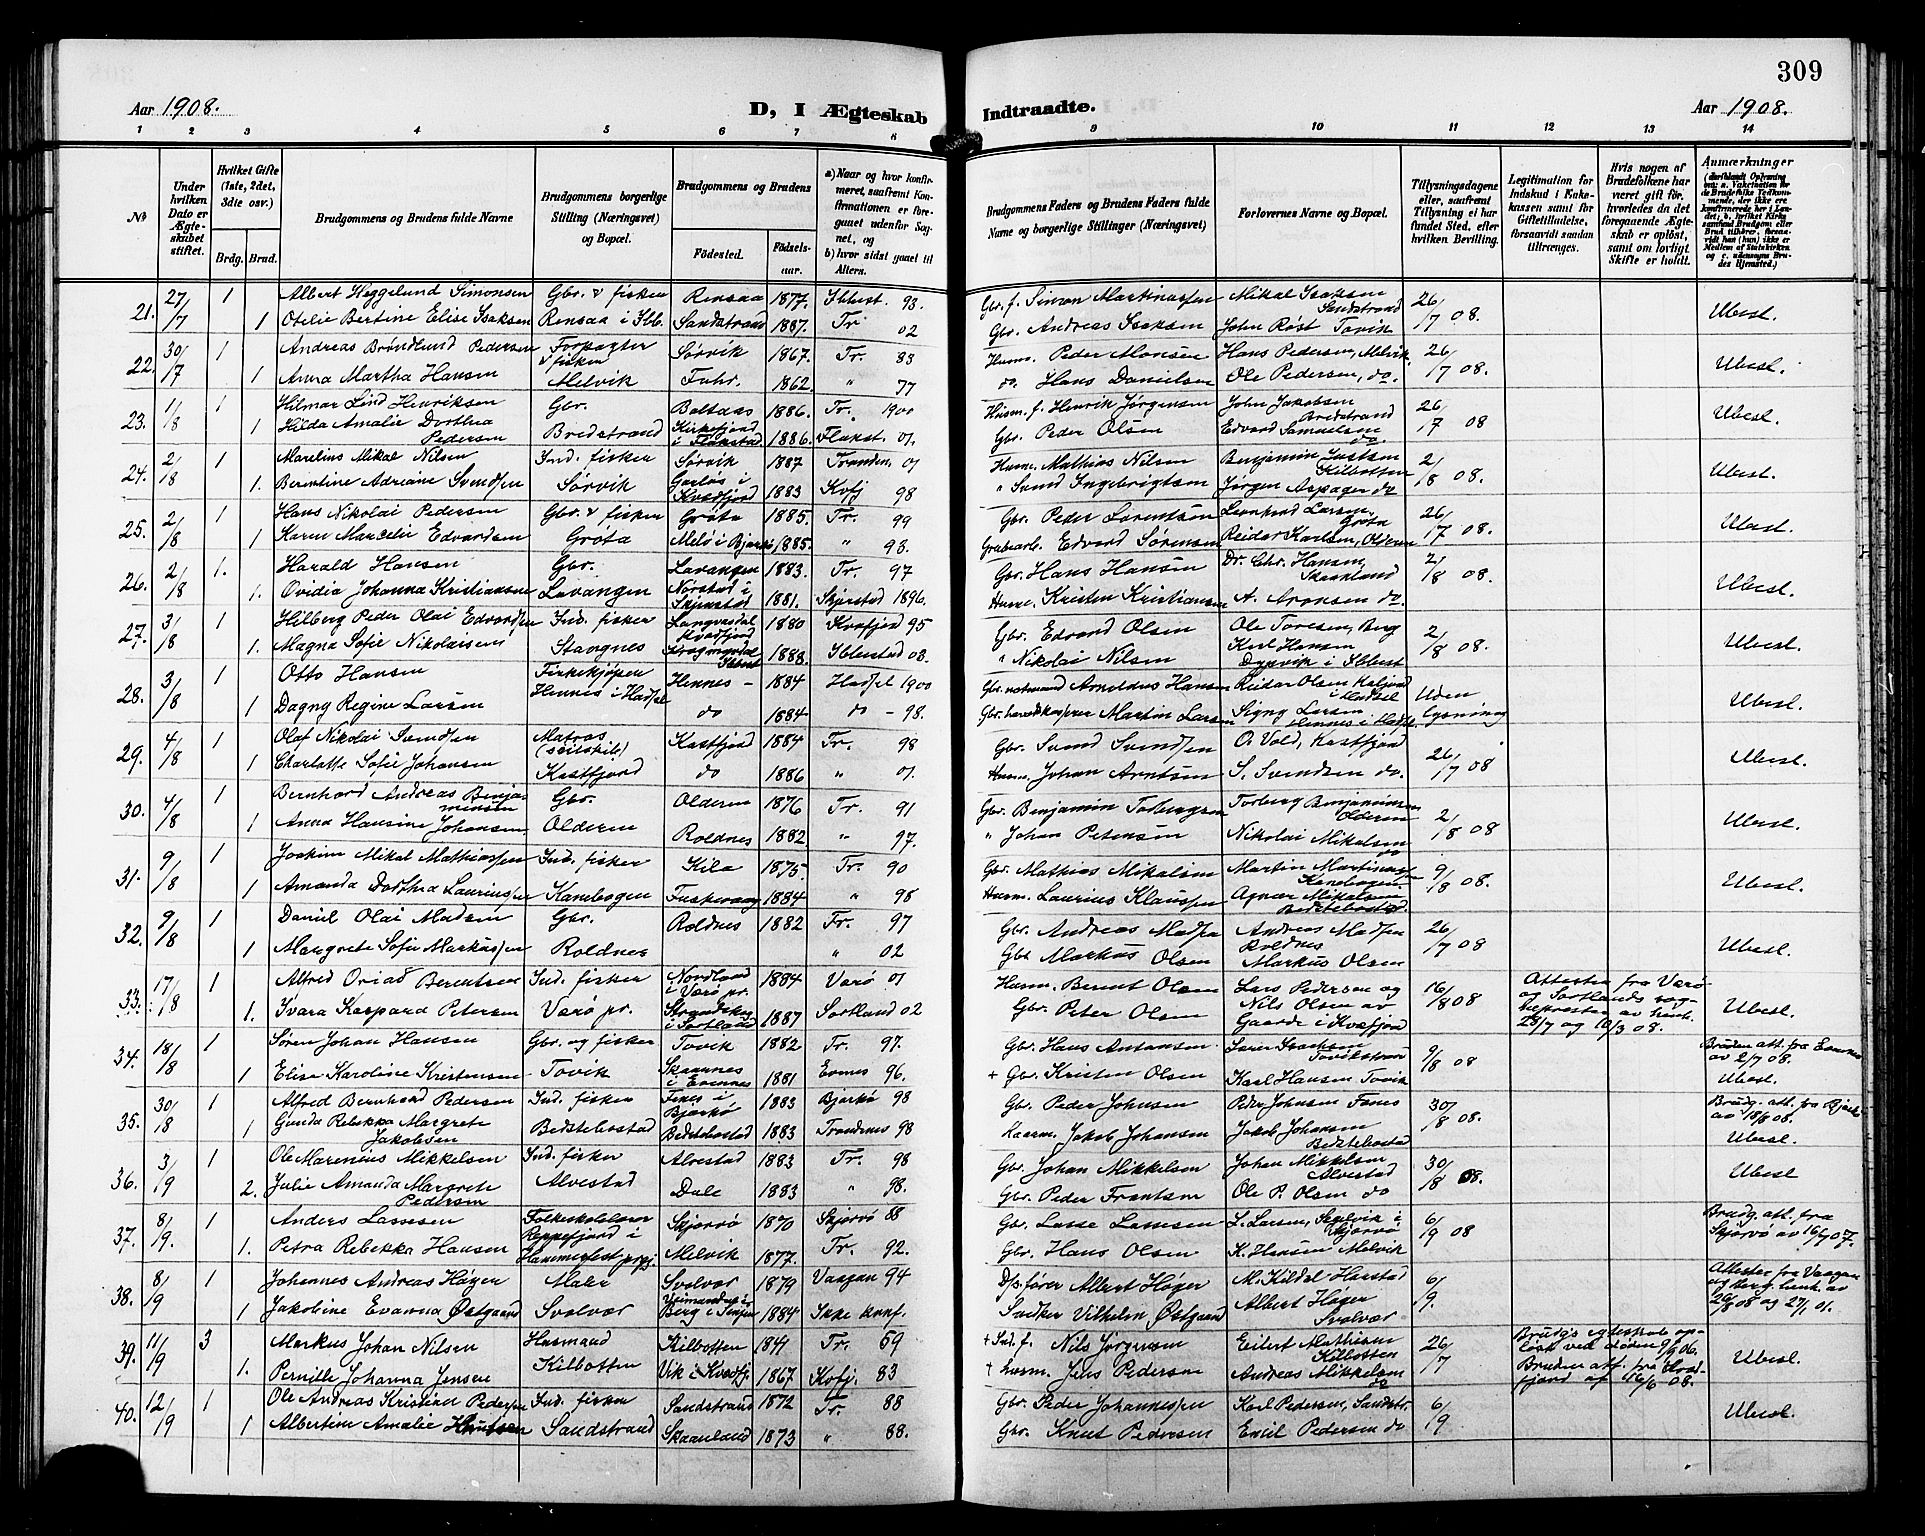 309
Aar 1908.
D, I Ægteskab
Indtraadte.
Aar 1908.
1 2 3 4 5 6 7 8 9 10 11 12 13 14
No
Under hvilken Dato er Ægteskabet stiftet.
Hvilket Gifte (1ste, 2det, 3dte osv.)
Brdg. Brud.
Brudgommens og Brudens fulde Navne
Brudgommens borgerlige Stilling (Næringsvei) og Bopæl.
Brudgommens og Brudens
Fødested.
Fødselsaar.
a) Naar og hvor konfirmeret, saafremt Konfirmationen er foregaaet udenfor Sognet, og
b) hvor sidst gaaet til Alters.
Brudgommens Faders og Brudens Faders fulde Navne og borgerlige Stillinger (Næringsvei)
Forlovernes Navne og Bopæl.
Tillysningsdagene eller, saafremt Tillysning ei har fundet Sted, efter hvilken Bevilling.
Legitimation for Indskud i Enkekassen samt for Giftetilladelse, forsaavidt saadan tiltrænges.
Hvis nogen af Brudefolkene har været gift før, hvorledes da det foregaaende Ægteskab er opløst, samt om lovligt Skifte er holdt.
Anmærkninger
21. 27/7 1 Albert Heggelund Simonsen Gbr. & fisker Rensaa 1877. Ibbest. 93. Gbr. f. Simon Martinussen Mikal Isaksen Sandstrand 26/7 08. Ubesl.
1 Otelie Bertine Elise Isaksen Rensaa i Ibb. Sandstrand 1887. Tr. 02 Gbr. Andreas Isaksen John Røst Tovik
22. 30/7 1 Andreas Brøndlund Pedersen Forpagter & fisker Sørvik 1867. Tr. 83 Husm. Peder Monsen Hans Pedersen, Melvik 26/7 08. Ubesl.
1 Anna Martha Hansen Melvik 1862. " 77 do. Hans Danielsen Ole Pedersen, do.
23. 1/8 1 Hilmar Lind Henriksen Gbr. Boltaas 1886. Tr. 1900 Husm. f. Henrik Jørgensen John Jakobsen Bredstrand 26/7 08 Ubesl.
1 Hilda Amalie Dorthea Pedersen Bredstrand Kirkefjord i Flakstad 1886. Flakst. 01. Gbr. Peder Olsen Edvard Samuelsen do.
24. 2/8 1 Marelius Mikal Nilsen Ind. fisker Sørvik 1887 Tranden. 01 Husm. Mathias Nilsen Benjamin Justsen Kilbotten 2/8 08. Ubesl.
1. Berntine Adriane Svendsen Sørvik i Kvæfjord 1883 Kvfj 98 " Svend Ingebrigtsen Jørgen Aspager do
25. 2/8 1 Hans Nikolai Pedersen Gbr. & fisker Grøta 1885. Tr. 99 Gbr. Peder Lorentsen Leonhard Larsen, Grøta 26/7 08. Ubesl.
1. Karen Marcelie Edvardsen Grøta Melø i Bjarkø 1885. " 93. Grubearb. Edvard Sørensen Reidar Karlsen, Olderen
26. 2/8 1. Harald Hansen Gbr. Lavangen 1883. Tr. 97 Gbr. Hans Hansen Dr. Chr. Hansen, Skaanland 2/8 08. Ubesl.
1. Ovidia Johanna Kristiansen Lavangen Nørstad i Skjerstad 1881. Skjerstad 1896. Husm. Kristen Kristiansen A. Aronsen do.
27. 3/8 1 Hilberg Peder Olai Edvardsen Ind. fisker Langvasdal Kvæfjord 1880 Kvæfjord 95 Gbr. Edvard Olsen Ole Toresen, Berg 2/8 08 Ubesl.
1. Magna Sofie Nikolaisen Stangnes Ibbest 1888. Ibbestad 03. " Nikolai Nilsen Karl Hansen Dyrvik i Ibbest
28. 3/8 1 Otto Hansen Hennes 1884 Hadsel 1900 Gbr. notmand Arnoldus Hansen Reidar Olsen Kaljord i Hadsel Uden lysning Ubesl.
1 Dagny Regine Larsen Hennes i Hadsel do 1884 do - 98. Martin Larsen Signy Larsen Hennes i Hadsel
29. 4/8 1 Olaf Nikolai Svendsen Matros (seilskib) Kastfjord 1884 Tr. 98 Gbr. Svend Svendsen O. Vold, Kastfjord 26/7 08 Ubesl.
1 Charlotte Sofie Johansen Kastfjord do 1886 " 01. Husm. Johan Arntsen S. Svendsen do.
30. 4/8 1 Bernhard Andreas Benjaminsen Gbr. Olderen 1876 Tr. 91 Gbr. Benjamin Torbergsen Torberg Benjaminsen Olderen 2/8 08 Ubesl.
1 Anna Hansine Johansen Olderen Roldnes 1882 " 97. " Johan Petersen Nikolai Mikalsen do
31. 9/8 1 Joakim Mikal Mathiassen Ind. fisker Kila 1875. Tr. 90 Gbr. Mathias Mikalsen Martin Martinussen Kanebogen 9/8 08. Ubesl.
1 Amanda Dorthea Lauriussen Kanebogen Fuskevaag 1884 " 98 Husm. Laurius Klaussen Agnar Mikalsen Bedstebostad.
32. 9/8 1 Daniel Olai Madsen Gbr. Roldnes 1882 Tr. 97 Gbr. Andreas Madsen Andreas Madsen Roldnes 26/7 08 Ubesl.
1 Margrete Sofie Markussen Roldnes " 02 Gbr Markus Olsen Markus Olsen
33. 17/8 1 Alfred Oviad Berentsen Ind. fisker Nordland i Værø pr. 1884 Værø 01 Husm. Bernt Olsen Lars Pedersen og 16/8 08 Attester fra Værø og Sortlands sogneprester av henh. 28/7 og 10/3 08. Ubesl.
1. Ivara Kaspara Petersen Værø pr. i Sortland 1887 Sortland 02 Gbr. Peter Olsen Nils Olsen av Gaarde i Kvæfjord
34. 18/8 1 Søren Johan Hansen Gbr. og fisker Tovik 1882 Tr. 97. Gbr. Hans Antonsen Isaksen Tovikstrand 9/8 08 Bruden att. fra Evenes av 2/7 08. Ubesl.
1 Elise Karoline Kristensen Tovik Skaanes i Evennes 1881 Evenes 96. + Gbr. Kristen Olsen Karl Hansen Tovik
35. 30/8 1 Alfred Bernhard Pedersen Ind. fisker i Bjarkø 1883 Bjarkø 98 Gbr. Peder Johnsen Peder Johnsen 30/8 08. Brudg. att. fra Bjarkø av 18/8 08. Ubesl.
1 Gunda Rebekka Margrete Jakobsen Bedstebostad Bedstebostad 1883 Trandenes 98 Jakob Johansen Jakob Johansen Bedstebostad
36. 3/9 1 Ole Marenius Mikkelsen Ind. fisker Alvestad 1883 Tr. 98 Gbr. Johan Mikkelsen Johan Mikkelsen Alvestad 30/8 08. Ubesl
2. Julie Amanda Margrete Pedersen Alvestad Dale 1883 " 98. Gbr. Peder Frantsen Ole P. Olsen do
37. 8/9. 1 Anders Lassesen Folkeskolelærer Skjærvø 1870 Skjærvø 88 Gbr. Lasse Lassesen L. Larsen, i Skjærvø 6/9 08 Brudg. att. fra Skjærvø av
1. Petra Rebekka Hansen Repperfjord i Hammerfest prgj. Melvik 1877. Tr. 92. Gbr. Hans Olsen K. Hansen Melvik
38. 8/9 1 Johannes Andreas Høger Maler Svolvær 1879 Vaagan 94 D/s. fører Albert Høger M. Kildal Harstad 6/9. Attester fra Vaagan og Berg henh. av 26/8 08 og 27/1 01.
1 Jakobine Evanna Østgaard Svolvær Berg i Senjen 1884 Ikke konf. Snedker Vilhelm Østgaard Albert Høger Svolvær
39. 11/9 3 Markus Johan Nilsen Husmand Kilbotten 1841 Tr. 59 + Ind. f. Nils Jørgensen Eilert Mathisen Kilbotten 26/7 Brudg's egteskab opløst ved døden 9/9 06. Bruden att. fra Kvædfjord af 16/6 08. Ubesl.
1. Pernille Johanna Jensen Kilbotten Vik i Kvædfj. 1867 Kvfj. 83 + husm. Jens Pedersen Andreas Mikkelsen do
40. 12/9 1 Ole Andreas Kristian Pedersen Ind. fisker Sandstrand 1872 Tr. 88 Gbr. Peder Johannessen Karl Pedersen, Sandstr. 6/9 Ubesl.
1 Albertine Amalie Knutsen Sandstrand Skaanland 1873 " 88. Gbr. Knut Pedersen Emil Pedersen do